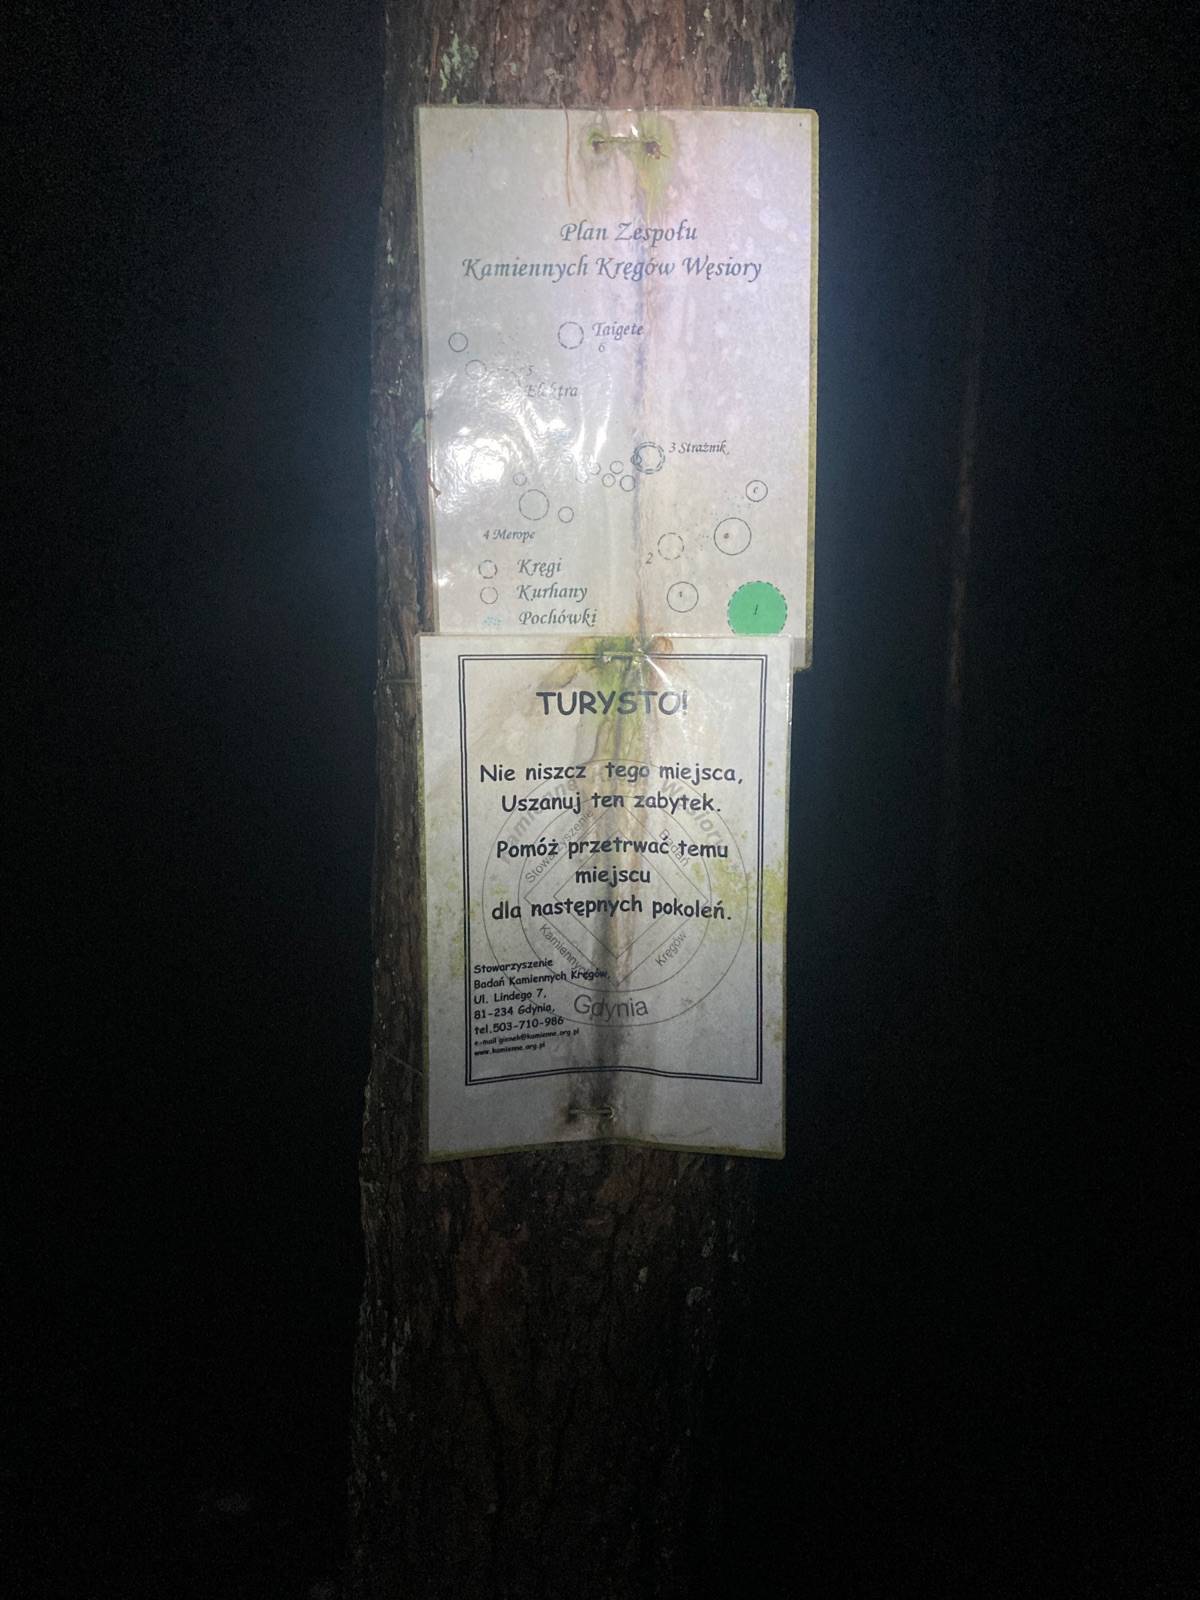 Plan Zespołu
Kamiennych Kręgów Węsiory
Taigete
6
5
Elektra
3 Strażnik
4 Merope
2
1
Kręgi
Kurhany
Pochówki
TURYSTO!
Nie niszcz tego miejsca,
Uszanuj ten zabytek.
Pomóż przetrwać temu
miejscu
dla następnych pokoleń.
Stowarzyszenie
Badań Kamiennych Kręgów,
Ul. Lindego 7,
81-234 Gdynia,
tel.503-710-986
e-mail gienek@kamienne.org.pl
www.kamienne.org.pl
Kamienne Kręgi Węsiory
Stowarzyszenie
Badań
Kamiennych
Kręgów
Gdynia